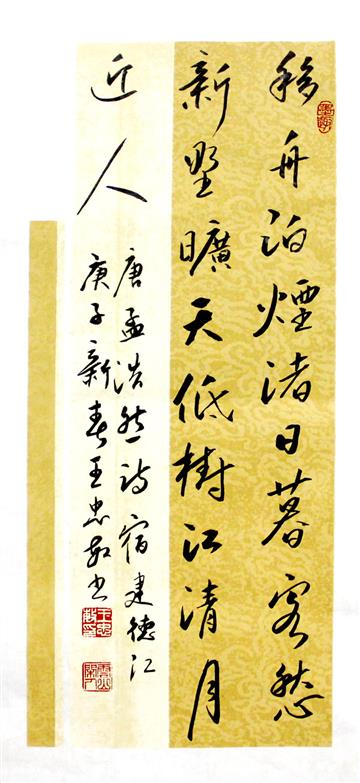 移舟泊煙渚日暮客愁
新野曠天低樹江清月
近人
唐孟浩然诗宿建德江
庚子新春王忠书